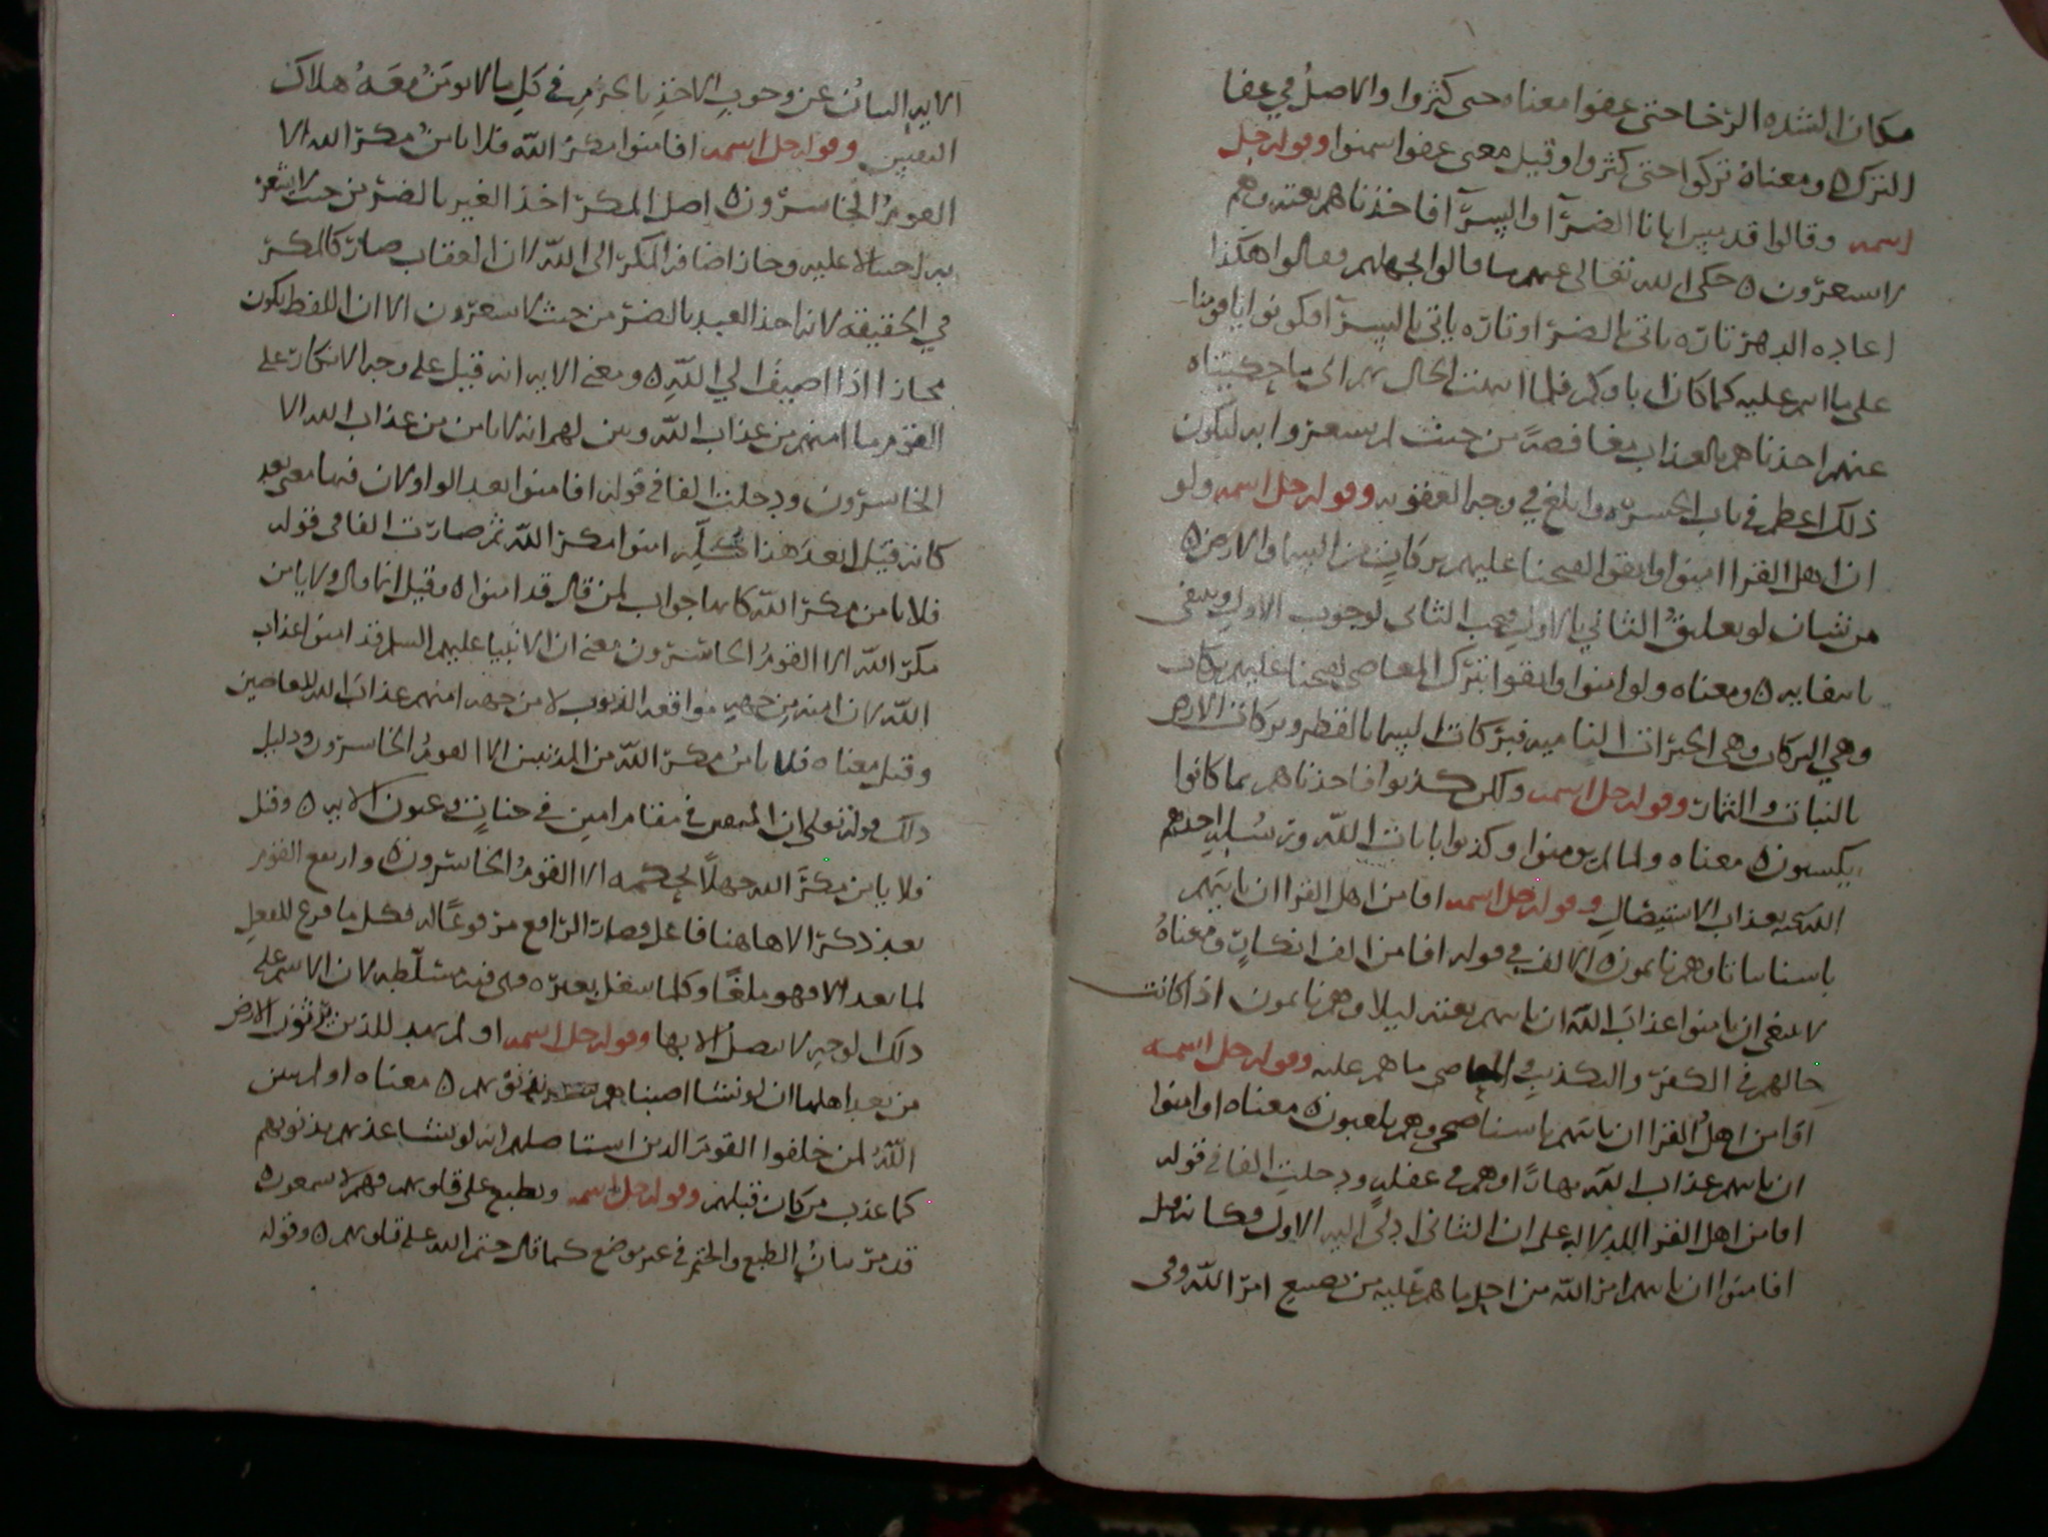 مكان الشده الرخا حتى عفوا معناه حتى كثروا والاصل في عفا
الترك ٥ ومعناه تركوا حتى كثروا وقيل معنى عفوا سمنوا وقوله جل
اسمه وقالوا قد مس ابانا الضرآ والسرآ فاخذناهم بغته وهم
لا يشعرون ٥ حكى الله تعالى عنهم ما قالوا لجهلهم وقالوا هكذا
عاده الدهر تاره ياتى بالضرا وتاره ياتي بالسرآ فكونوا يا قومنا
على ما انتم عليه كما كان اباوكم فلما انتهت الحال بهم الى ما حكيناه
عنهم اخذناهم بالعذاب مغافصة من حيث لم يشعروا به ليكون
ذلك اعظم في باب الحسره وابلغ في وجه العقوبه وقوله جل اسمه ولو
ان اهل القرا امنوا واتقوا لفتحنا عليهم بركات من السما والارض ٥
من شان لو تعليق الثاني بالاول فيجب الثانى لوجوب الاول وينتفى
بانتفايه ٥ ومعناه ولو امنوا واتقوا بترك المعاصى لفتحنا عليهم بركات
وهي البركات وهى الخيرات الناميه فبركات السما بالقطر وبركات الارض
بالنبات والثمار وقوله جل اسمه ولكن كذبوا فاخذناهم بما كانوا
يكسبون ٥ معناه ولما لم يومنوا وكذبوا بايات الله ورسله اخذهم
الله بعذاب الاستيصال وقوله جل اسمه افامن اهل القرا ان ياتيهم
باسنا بياتا وهم نايمون ٥ الالف في قوله افامن الف انكار ومعناه
لا ينبغي ان يامنوا عذاب الله ان ياتيهم بغته ليلا وهم نايمون اذا كانت
حالهم في الكفر والتكذيب والمعاصى ما هم عليه وقوله جل اسمه
افامن اهل القرا ان ياتيهم باسنا ضحى وهم يلعبون ٥ معناه او امنوا
ان ياتيهم عذاب الله نهارًا وهم في غفله ودخلت الفا في قوله
افامن اهل القرا للدلاله على ان الثانى ادى اليه الاول فكانه قيل
افامنوا ان ياتيهم امر الله من اجل ما هم عليه من تضييع امر الله وفى
الايه البيان عن وجوب الاخذ بالحزم في كل ما لا يومن معه هلاك
النفس وقوله جل اسمه افامنوا مكر الله فلا يامن مكر الله الا
القوم الخاسرون ٥ اصل المكر اخذ الغير بالضر من حيث لا يشعر
به احتيالا عليه وجاز اضافه المكر الى الله لان العقاب صار كالمكر
في الحقيقه لانه اخذ العبد بالضر من حيث لا يشعرون الا ان اللفظ يكون
مجازا اذا اضيف الي الله ٥ ومعنى الايه انه قيل على وجه الانكار على
القوم ما امنهم من عذاب الله وبين لهم انه لا يامن من عذاب الله الا
الخاسرون ودخلت الفا في قوله افامنوا بعد الواو لان فيها معنى بعد
كانه قيل ابعد هذا كله امنوا مكر الله ثم صارت الفا فى قوله
فلا يامن مكر الله كانها جواب لمن قال قد امنوا ٥ وقيل انما قال ولا يامن
مكر الله الا القوم الخاسرون معنى ان الانبيا عليهم السلم قد امنوا عذاب
الله لان امنه من جهه مواقعه الذنوب لا من جهه امنهم عذاب الله للعاصين
وقيل معناه فلا يامن مكر الله من المذنبين الا القوم الخاسرون ودليل
ذلك قوله تعالى ان المتقين في مقام امين في جنات وعيون الايه ٥ وقيل
فلا يامن مكر الله جهلًا بحكمه الا القوم الخاسرون ٥ وارتفع القوم
بعد ذكر الا هاهنا فاعل فصار الرافع مرفوعًا له فكل ما فرغ للفعل
لما بعد الا فهو ملغًا وكلما شغل بغيره فهى فيه مسلّطه لان الاسم على
ذلك لوجه لا يتصل الا بها وقوله جل اسمه اولم يهد للذين يرثون الارض
من بعد اهلها ان لو نشا اصبناهم بذنوبهم ٥ معناه اولم يبين
الله لمن خلفوا القوم الدين استاصلهم انه لو يشا عذبهم بذنوبهم
كما عذب من كان قبلهم وقوله جل اسمه ونطبع على قلوبهم فهم لا يسمعون ٥
قد مر بيان الطبع والختم في غير موضع كما قال ختم الله على قلوبهم ٥ وقوله